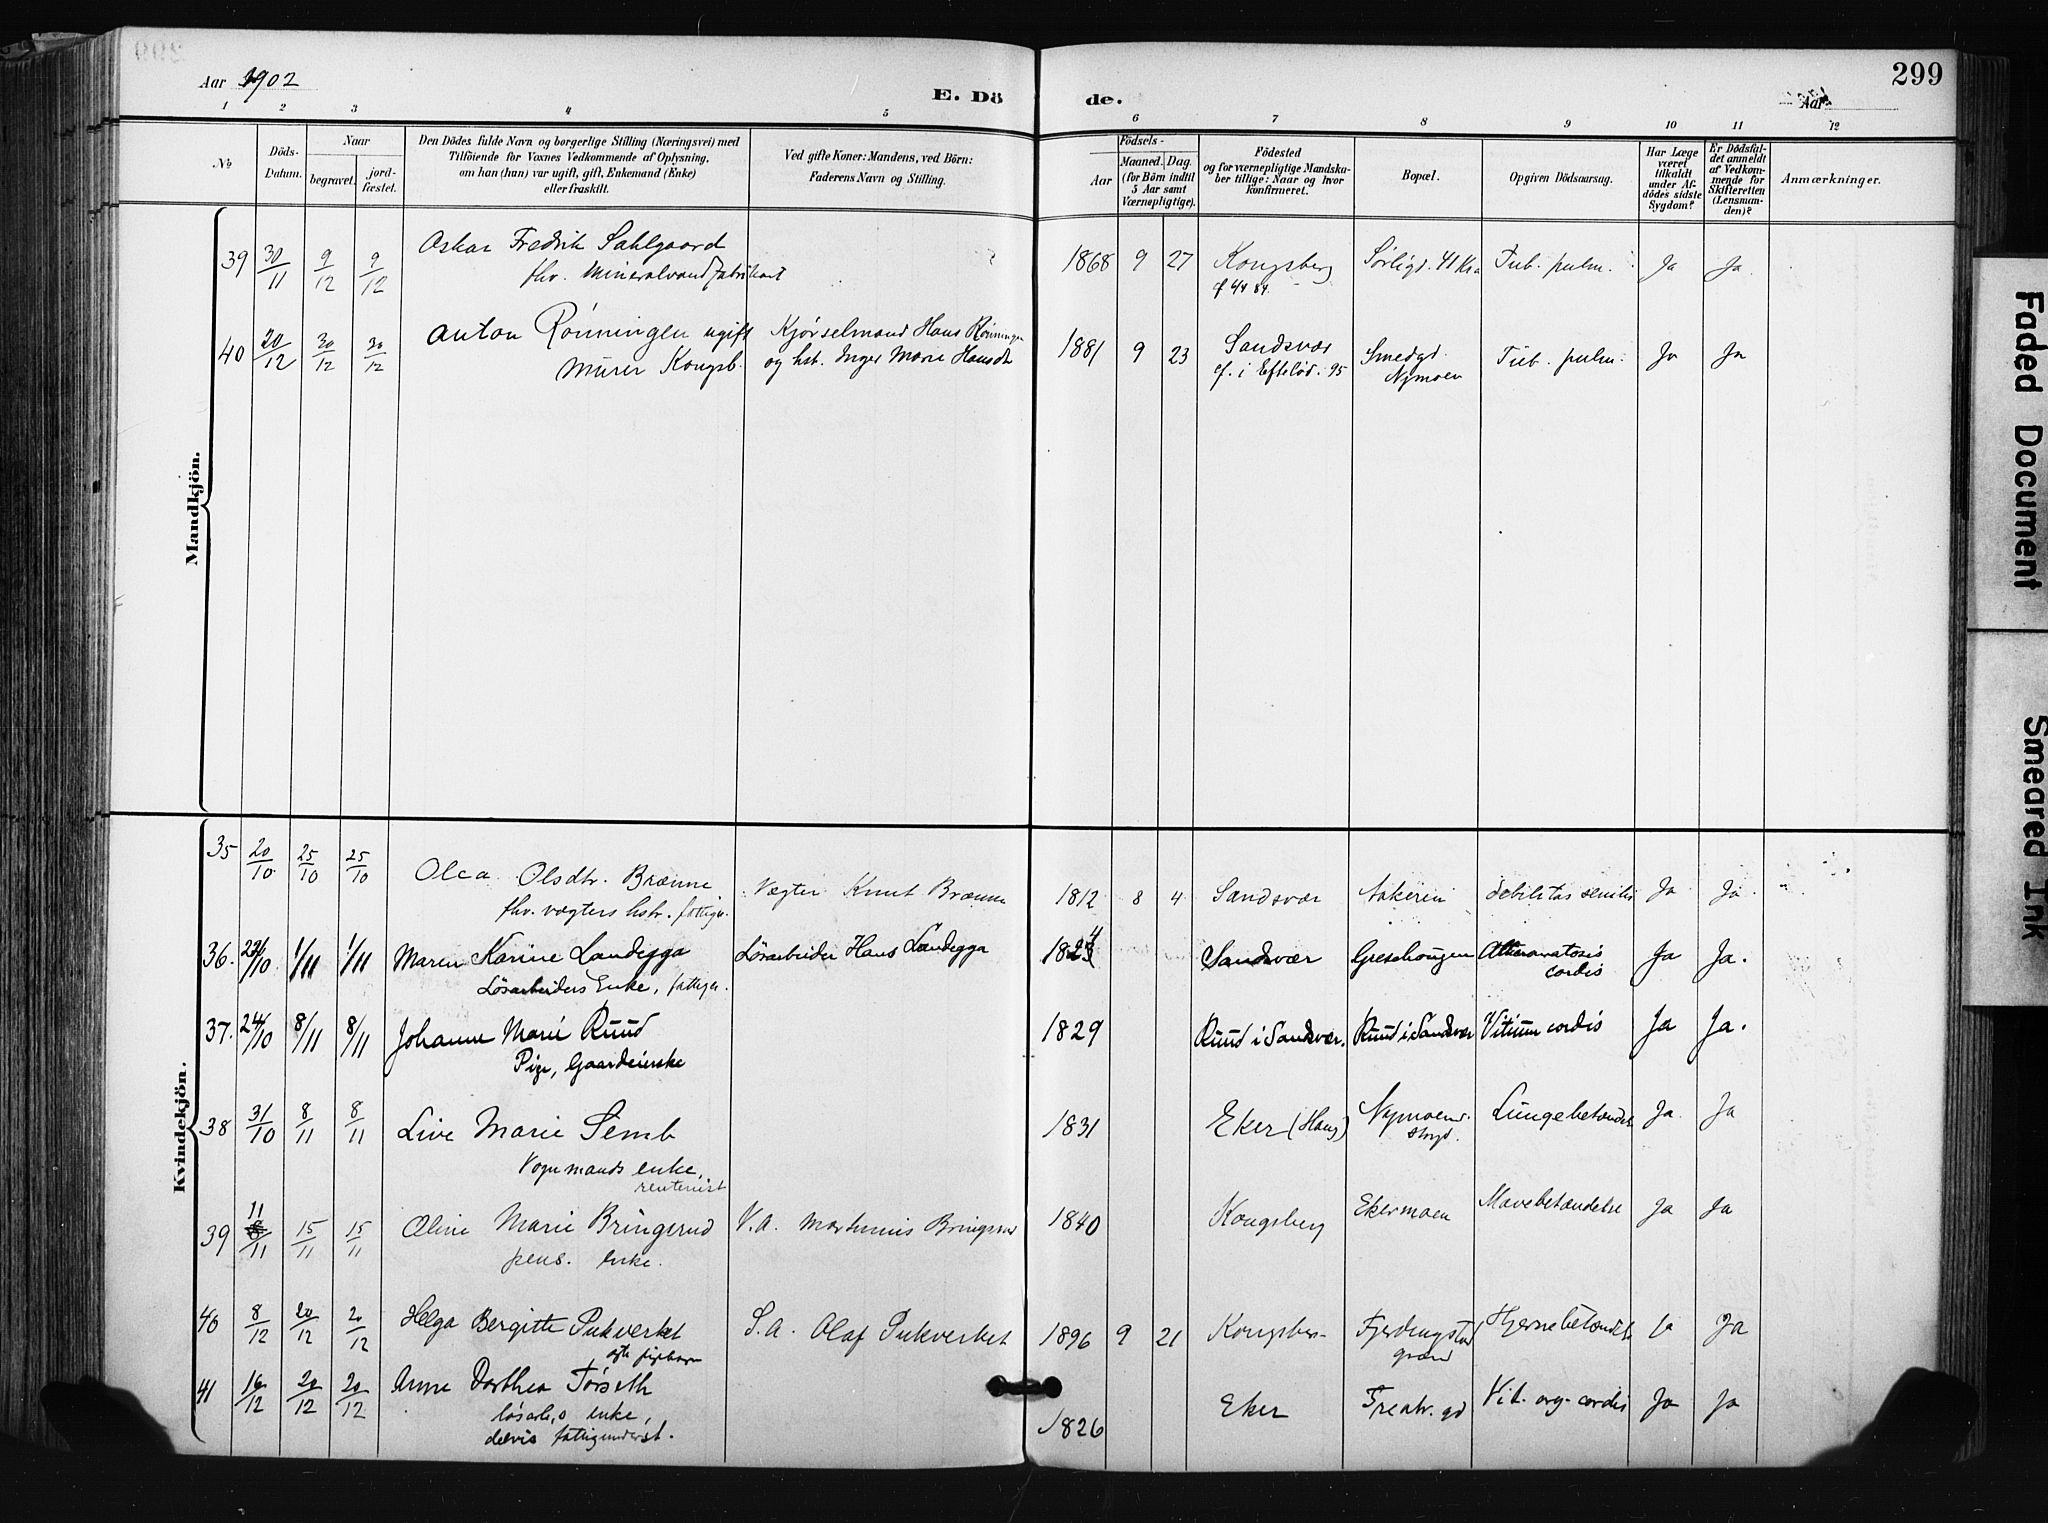 Aar 1902
E. Dö
de.
Aar
299
1 2 3 4 5 6 7 8 9 10 11 12
No
Döds-
Datum.
Naar
begravet.
jord-
fæstet.
Den Dödes fulde Navn og borgerlige Stilling (Næringsvei) med
Tilföiende for Voxnes Vedkommende af Oplysning,
om han (hun) var ugift, gift, Enkemand (Enke)
eller fraskilt.
Ved gifte Koner: Mandens, ved Börn:
Faderens Navn og Stilling.
Födsels-
Aar
Maaned.
Dag.
(for Börn indtil
5 Aar samt
Værnepligtige).
Födested
og for værnepligtige Mandska-
ber tillige: Naar og hvor
konfirmeret.
Bopæl.
Opgiven Dödsaarsag.
Har Læge
været
tilkaldt
under Af-
dödes sidste
Sygdom?
Er Dödsfal-
det anmeldt
af Vedkom-
mende for
Skifteretten
(Lensman-
den)?
Anmærkninger.
Mandkjön.
39 30/11 9/12 9/12 Oskar Fredrik Sahlgaard ? 1868 9 27 Kongsberg Sørligd. 41 Ksa Tub. pulm. Ja Ja
fhv. Mineralvandfabrikant
40 20/12 30/12 30/12 Anton Rönningen ugift Kjørselmand Hans Rönningen 1881 9 23 Sandsvær Smedgd. Tub. pulm. Ja Ja
Murer Kongsb. og hst. Inger Marie Hansdtr cf. i Efteløt. 95 Nymoen
Kvindekjön.
35 20/10 25/10 25/10 Olea Olsdtr. Brænne Vægter Knut Brænne 1812 8 4 Sandsvær debilitas senilis Ja Ja
fhv. vægters hstr. fattigu.
36. /10 1/11 1/11 Maren Karine Landegga Løsarbeider Hans Landegga 1824 Sandsvær Greschougen Atheromatosis Ja Ja.
Løsarbeiders Enke, fattigu. cordis
37. 24/10 8/11 8/11 Johanne Marie Ruud 1829 Ruud i Sandsvær. Ruud i Sandsvær Vitium cordis Ja Ja.
Pige, Gaardeierske
38 31/10 8/11 8/11 Live Marie Semb 1831 Eker (Haug) Nymoens- Lungebetændel. Ja Ja
Vognmands enke, strgd.
rentenist
39 11/11 15/11 15/11 Oline Marie Bringsrud V.A. Marthinius Bringsrud 1840 Kongsberg Ekermoen Mavebetændelse Ja Ja
pens. enke.
40 8/12 20/12 20/12 Helga Bergitte Pukverket S.A. Olaf Pukverket 1896 9 21 Kongsber- Fjerdingstad Hjernebetændel. Ja Ja
ægte pigebarn
41 16/12 20/12 20/12 Anne Dorthea Tørseth 1826 Eker Vit. org. cordis Ja Ja
løsarb.s enke,
delvis fattigunderst.
Faded Document
Smeared Ink